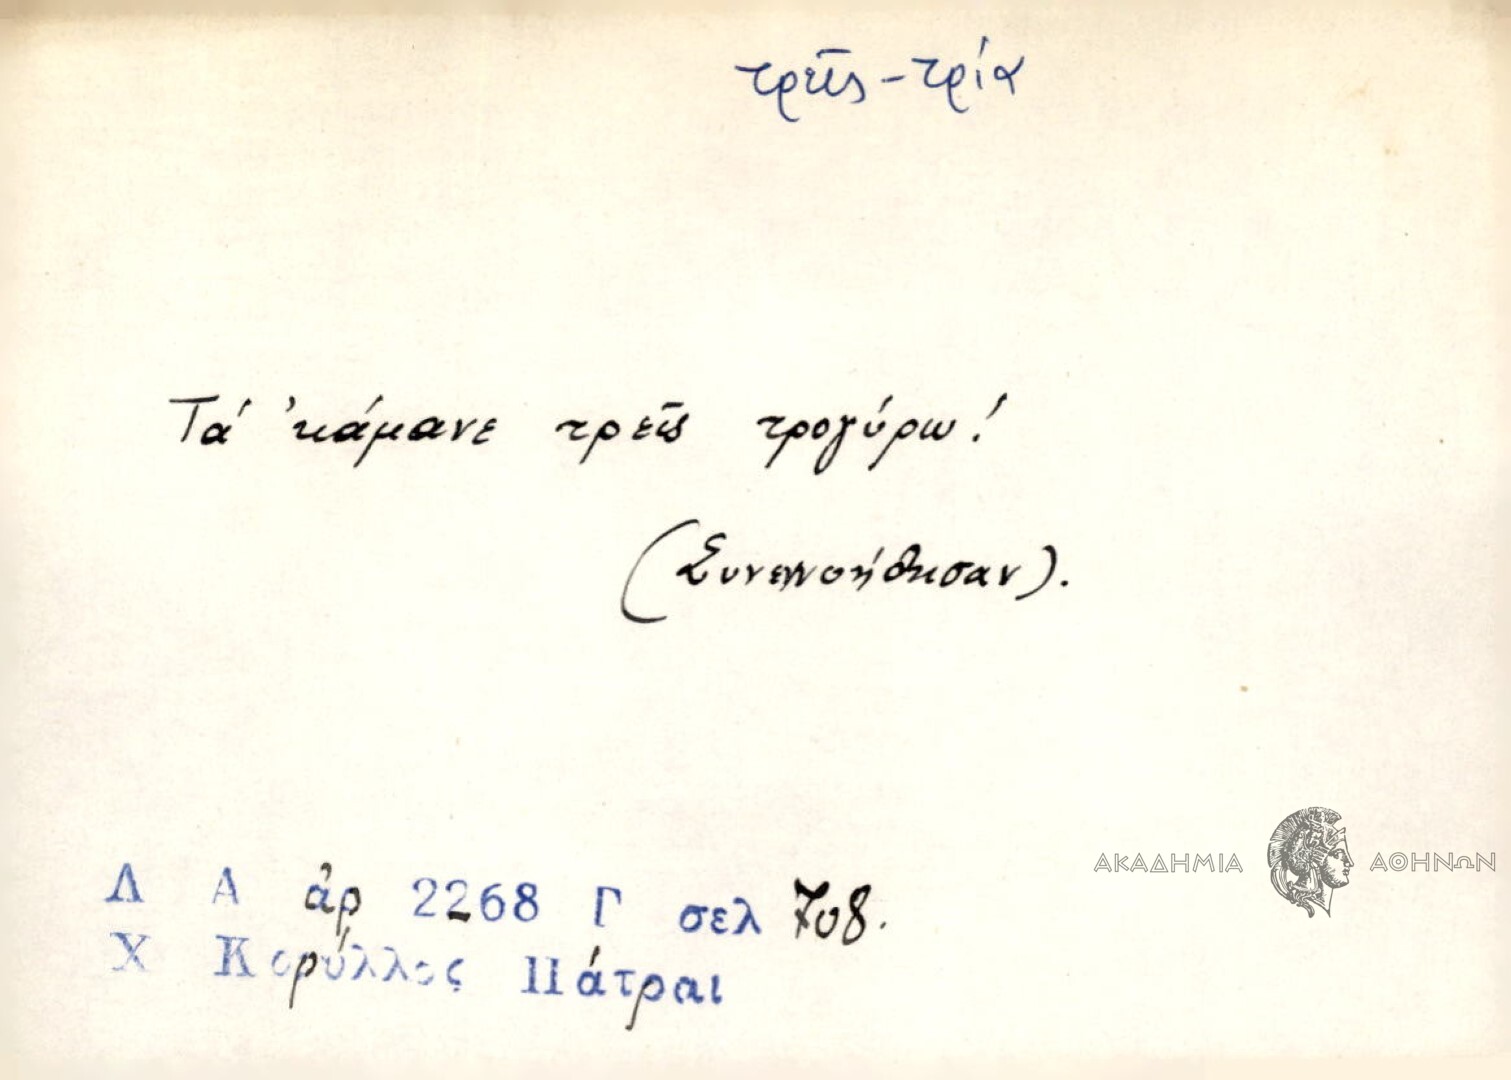 τρεῖς - τρία
Τά 'κάμανε τρεῖς τρογύρω!
(Συνεννοήθησαν).
Λ Α ἀρ 2268 Γ σελ 708.
Χ Κορύλλος Πάτραι
ΑΚΑΔΗΜΙΑ ΑΘΗΝΩΝ